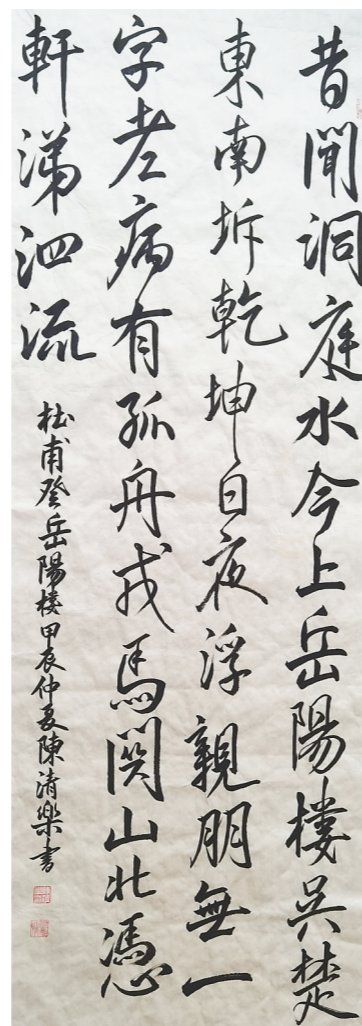 昔聞洞庭水今上岳陽樓吳楚
東南坼乾坤日夜浮親朋無一
字老病有孤舟戎馬関山北憑
軒涕泗流
杜甫登岳陽樓甲辰仲夏陳清樂書